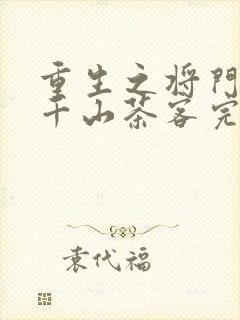 重生之将门
千山茶客完
袁代福